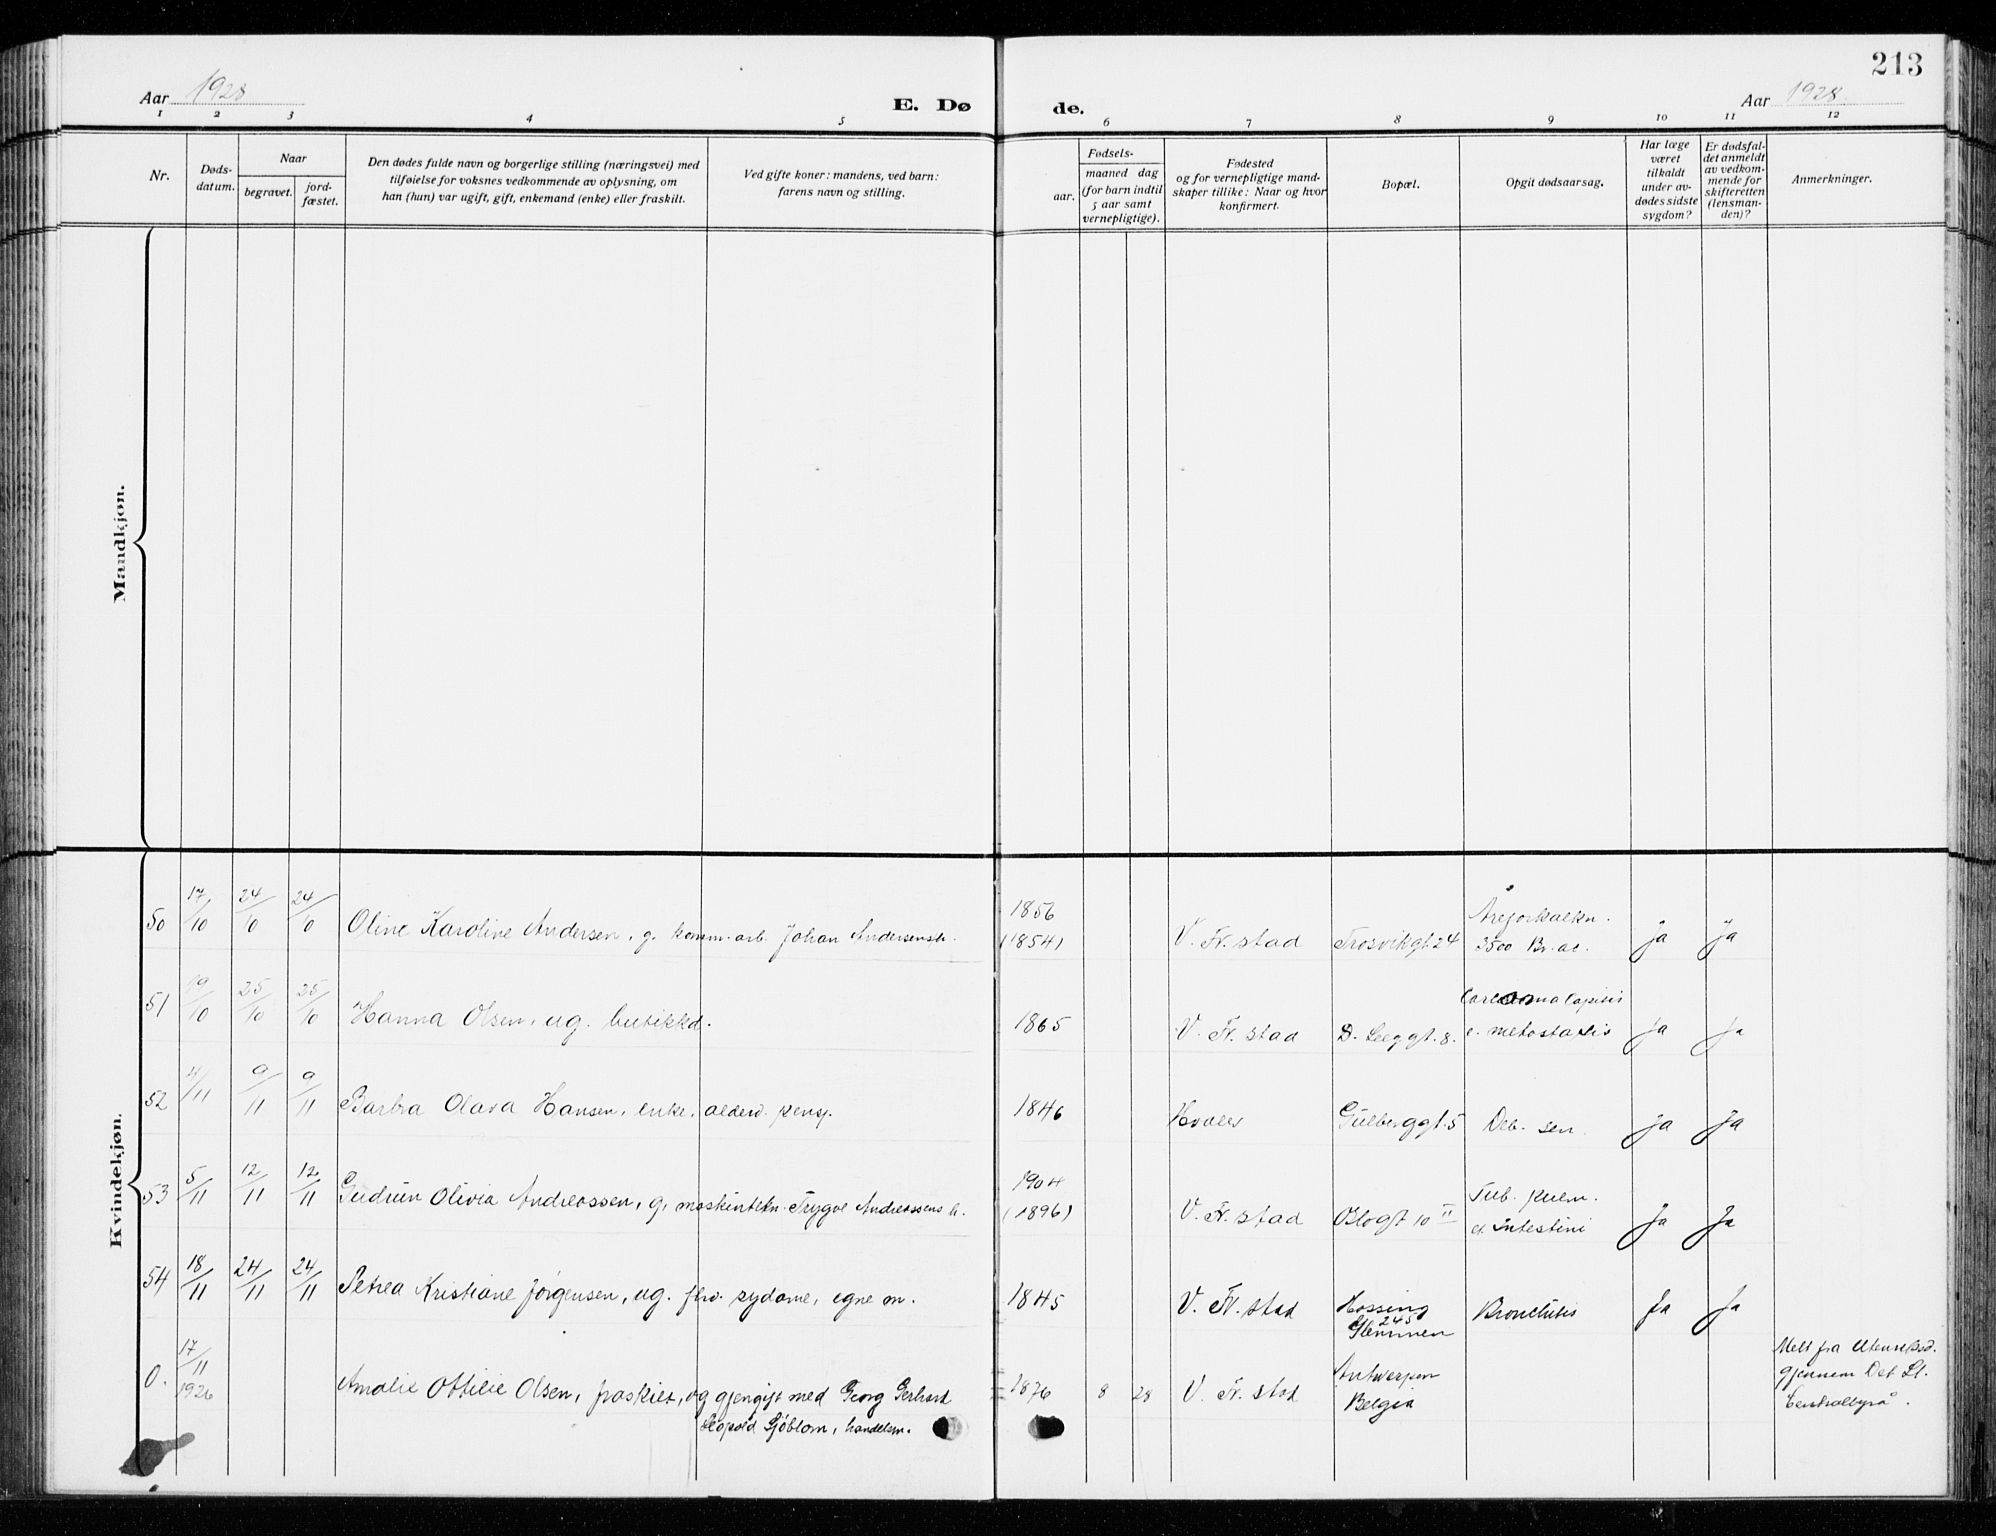 213
Aar 1928
E. Dø
de.
Aar 1928
1 2 3 4 5 6 7 8 9 10 11 12
Nr.
Døds-
datum.
Naar
begravet.
jord-
fæstet.
Den dødes fulde navn og borgerlige stilling (næringsvei) med
tilføielse for voksnes vedkommende av oplysning, om
han (hun) var ugift, gift, enkemand (enke) eller fraskilt.
Ved gifte koner: mandens, ved barn:
farens navn og stilling.
Fødsels-
aar.
maaned dag
(for barn indtil
5 aar samt
vernepligtige).
Fødested
og for vernepligtige mand-
skaper tillike: Naar og hvor
konfirmert.
Bopæl.
Opgit dødsaarsag.
Har læge
været
tilkaldt
under av-
dødes sidste
sygdom?
Er dødsfal-
det anmeldt
av vedkom-
mende for
skifteretten
(lensman-
den)?
Anmerkninger.
Mandkjøn.
Kvindekjøn.
50 17/10 24/10 24/10 Oline Karoline Andersen, g. komm. arb. Johan Andersens h. 1856 (1854) V. Fr.stad Trosvikgt. 24 Åreforkalkn. 3500 Br. ac. ja ja
51 19/10 25/10 25/10 Hanna Olsen, ug. butikkd. 1865 V. Fr.stad D. Leeggt. 8. c. metostasis ja ja
52 4/11 9/11 9/11 Barbra Olava Hansen, enke, alderd. pensj. 1846 Hvaler Gülberggt. 5 Deb. sen. ja ja
53 5/11 12/11 12/11 Gudrun Olivia Andreassen, g. maskintekn. Trygve Andreassens h. 1904 (1896) V. Fr.stad Blogt 10 II Tub. pulm. et Intestini Ja Ja
54 18/11 24/11 24/11 Petrea Kristiane Jørgensen, ug. fhv. sydame, egne m. 1845 V. Fr.stad Hassing 245 Glemmen Bronchitis Ja Ja
0. 17/11 1926 Amalie Ottilie Olsen, fraskilt, og gjengift med Georg Gerhard 1876 8 28 V. Fr.stad Antwerpen Belgia Melt fra Utenriksd.
Leopold Sjöblom, handelsm. gjennem Det St.
Centralbyrå.